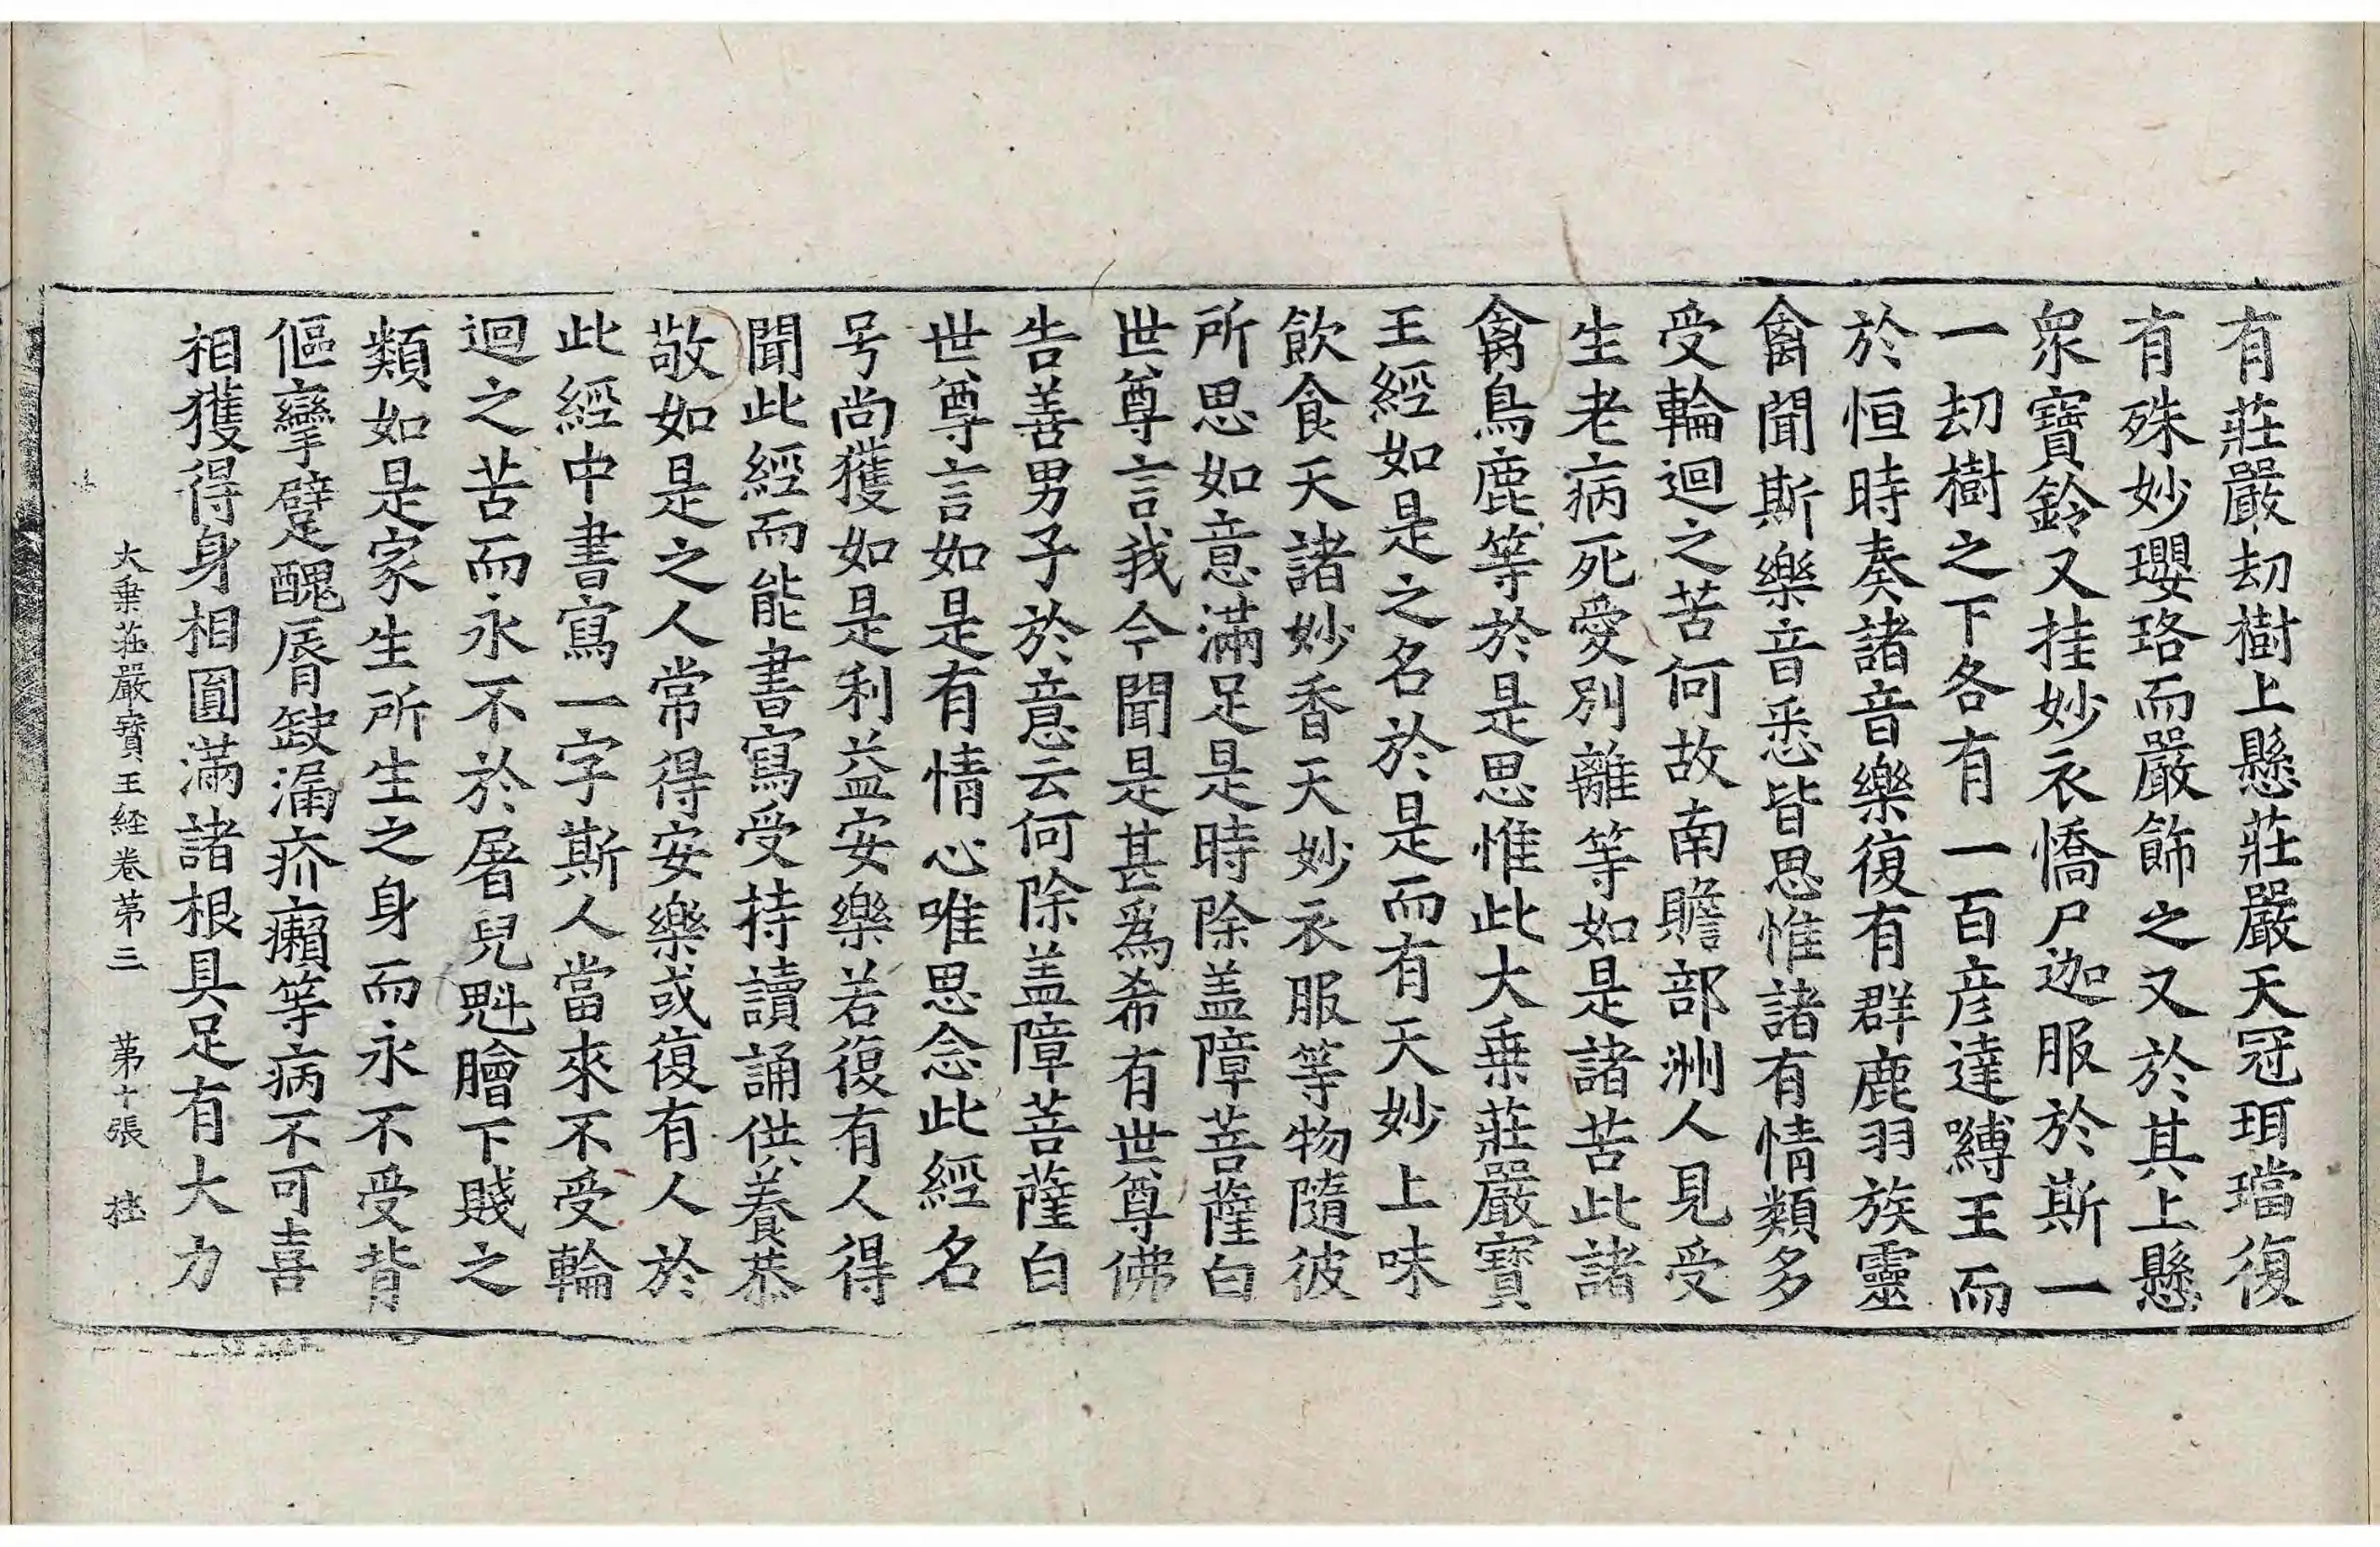 有莊嚴劫樹上懸莊嚴天冠珥璫復
有殊妙瓔珞而嚴飾之又於其上懸
衆寶鈴又挂妙衣憍尸迦服於斯一
一劫樹之下各有一百彦達嚩王而
於恒時奏諸音樂復有群鹿羽族靈
禽聞斯樂音悉皆思惟諸有情類多
受輪迴之苦何故南贍部洲人見受
生老病死愛別離等如是諸苦此諸
禽鳥鹿等於是思惟此大乗莊嚴寶
王經如是之名於是而有天妙上味
飲食天諸妙香天妙衣服等物隨彼
所思如意滿足是時除盖障菩薩白
世尊言我今聞是甚爲希有世尊佛
告善男子於意云何除盖障菩薩白
世尊言如是有情心唯思念此經名
号尚獲如是利益安樂若復有人得
聞此經而能書寫受持讀誦供養恭
敬如是之人常得安樂或復有人於
此經中書寫一字斯人當來不受輪
迴之苦而永不於屠兒魁膾下賤之
類如是家生所生之身而永不受背
傴攣躄醜脣缺漏疥癩等病不可喜
相獲得身相圓滿諸根具足有大力
大乗莊嚴寶王経卷第三　第十張